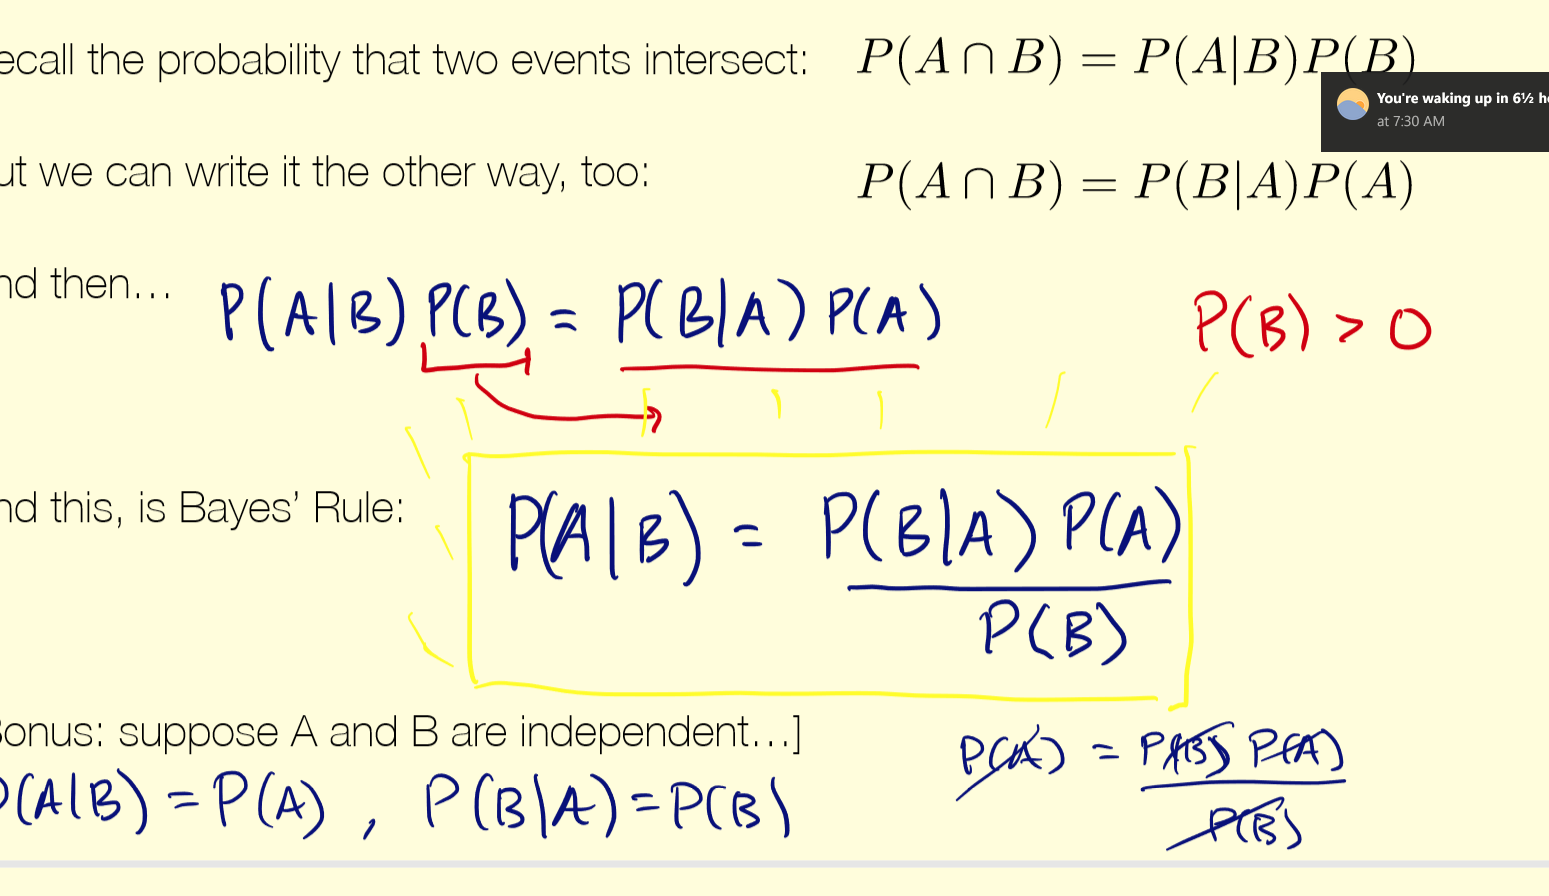 ecall the probability that two events intersect: P(A ∩ B) = P(A|B)P(B)
You're waking up in 6½ h
at 7:30 AM
ut we can write it the other way, too: P(A ∩ B) = P(B|A)P(A)
nd then... P(A|B) P(B) = P(B|A) P(A) P(B) > 0
nd this, is Bayes' Rule: P(A|B) = P(B|A) P(A)
P(B)
Bonus: suppose A and B are independent...]
P(A) = P(B) P(A)
P(B)
P(A|B) = P(A) , P(B|A) = P(B)